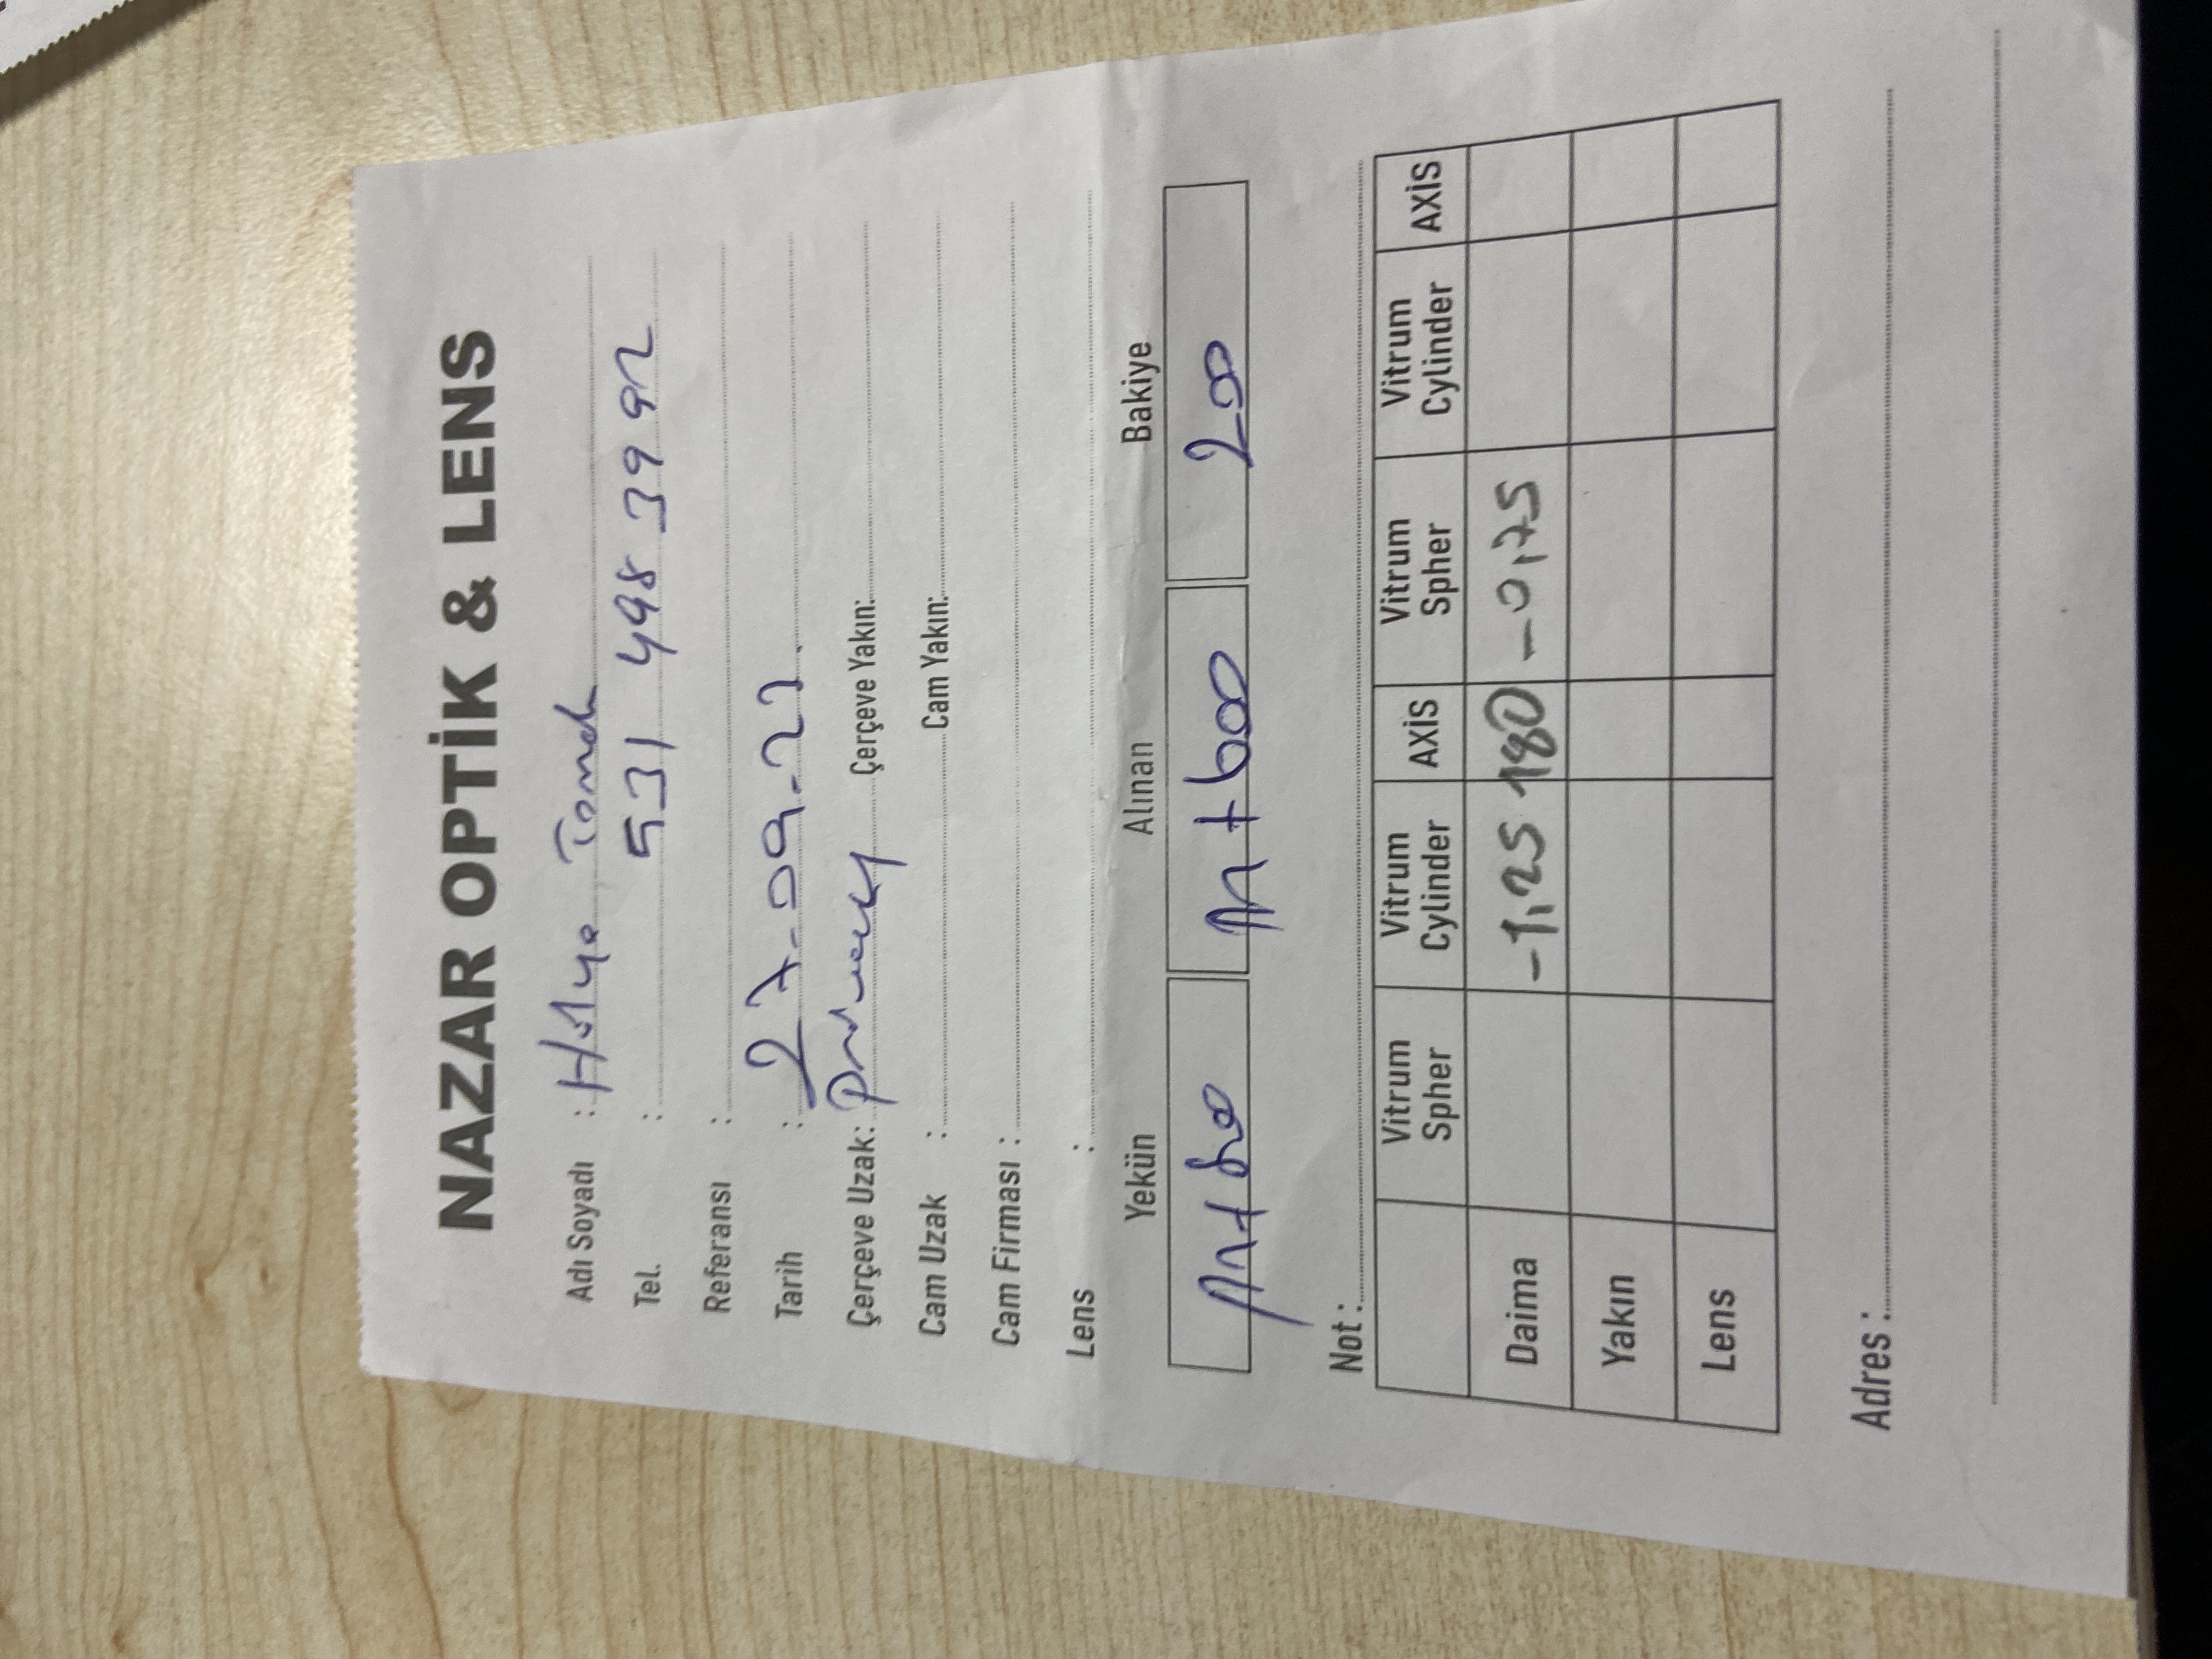 NAZAR OPTİK & LENS
Adı Soyadı : Hülya
Tel. : 531 498 3992
Referansı :
Tarih : 27-09-23.
Çerçeve Uzak: Çerçeve Yakın:
Cam Uzak : Cam Yakın:
Cam Firması :
Lens :
Yekün Alınan Bakiye
M+800 M+600 200
Not :
Vitrum Spher Vitrum Cylinder AXİS Vitrum Spher Vitrum Cylinder AXİS
Daima -1,25 180 -0,75
Yakın
Lens
Adres :